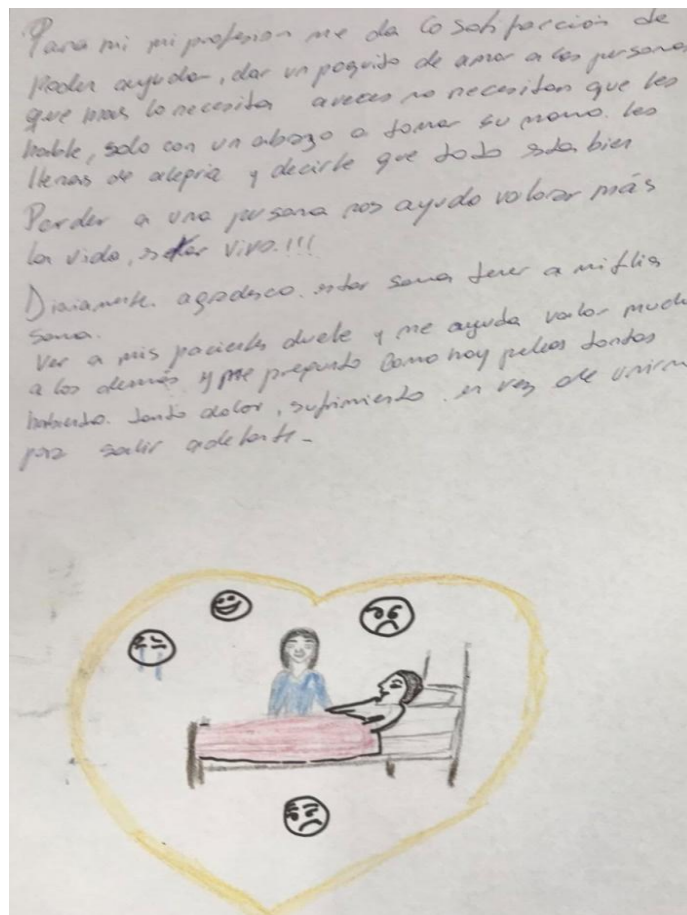 Para mi mi profesion me da la satisfacción de
Poder ayudar, dar un poquito de amor a las personas
que mas lo necesita aveces no necesitan que les
hable, solo con un abrazo o tomar su mano. les
llenas de alegria y decirle que todo esta bien
Perder a una persona nos ayuda valorar más
la vida, estar vivo.!!!
Diariamente. agradesco. estar sana tener a mi flia
sana.
Ver a mis pacientes duele y me ayuda valor mucho
a los demás y me pregunto como hay peleas tantas
habiendo. tanto dolor, sufrimiento. en vez de unirnos
para salir adelante-